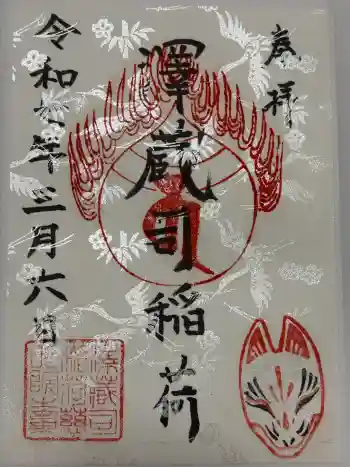 奉拝
澤蔵司稲荷
令和七年三月六日